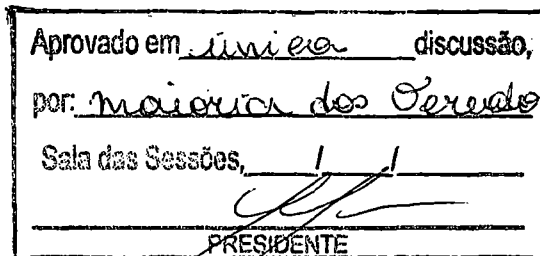 Aprovado em única discussão,
por: maioria dos Veread
Sala das Sessões, / /
PRESIDENTE